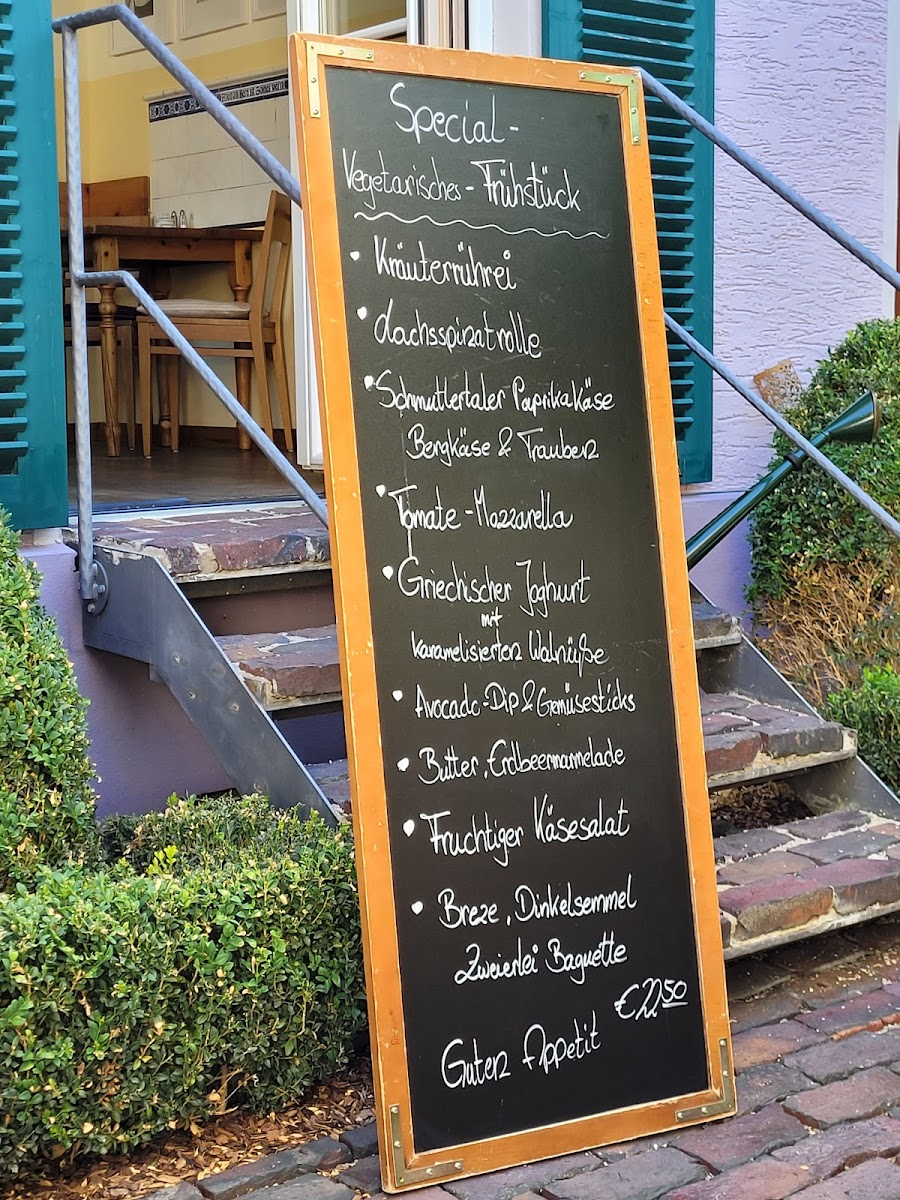 Special -
Vegetarisches - Frühstück
• Kräuterrührei
• Lachsspinatrolle
• Schmuttertaler Paprikakäse
Bergkäse & Trauben
• Tomate - Mozzarella
• Griechischer Joghurt
mit
karamelisierten Walnüße
• Avocado - Dip & Gemüsesticks
• Butter, Erdbeermarmelade
• Fruchtiger Käsesalat
• Breze, Dinkelsemmel
Zweierlei Baguette
€22,50
Guten Appetit